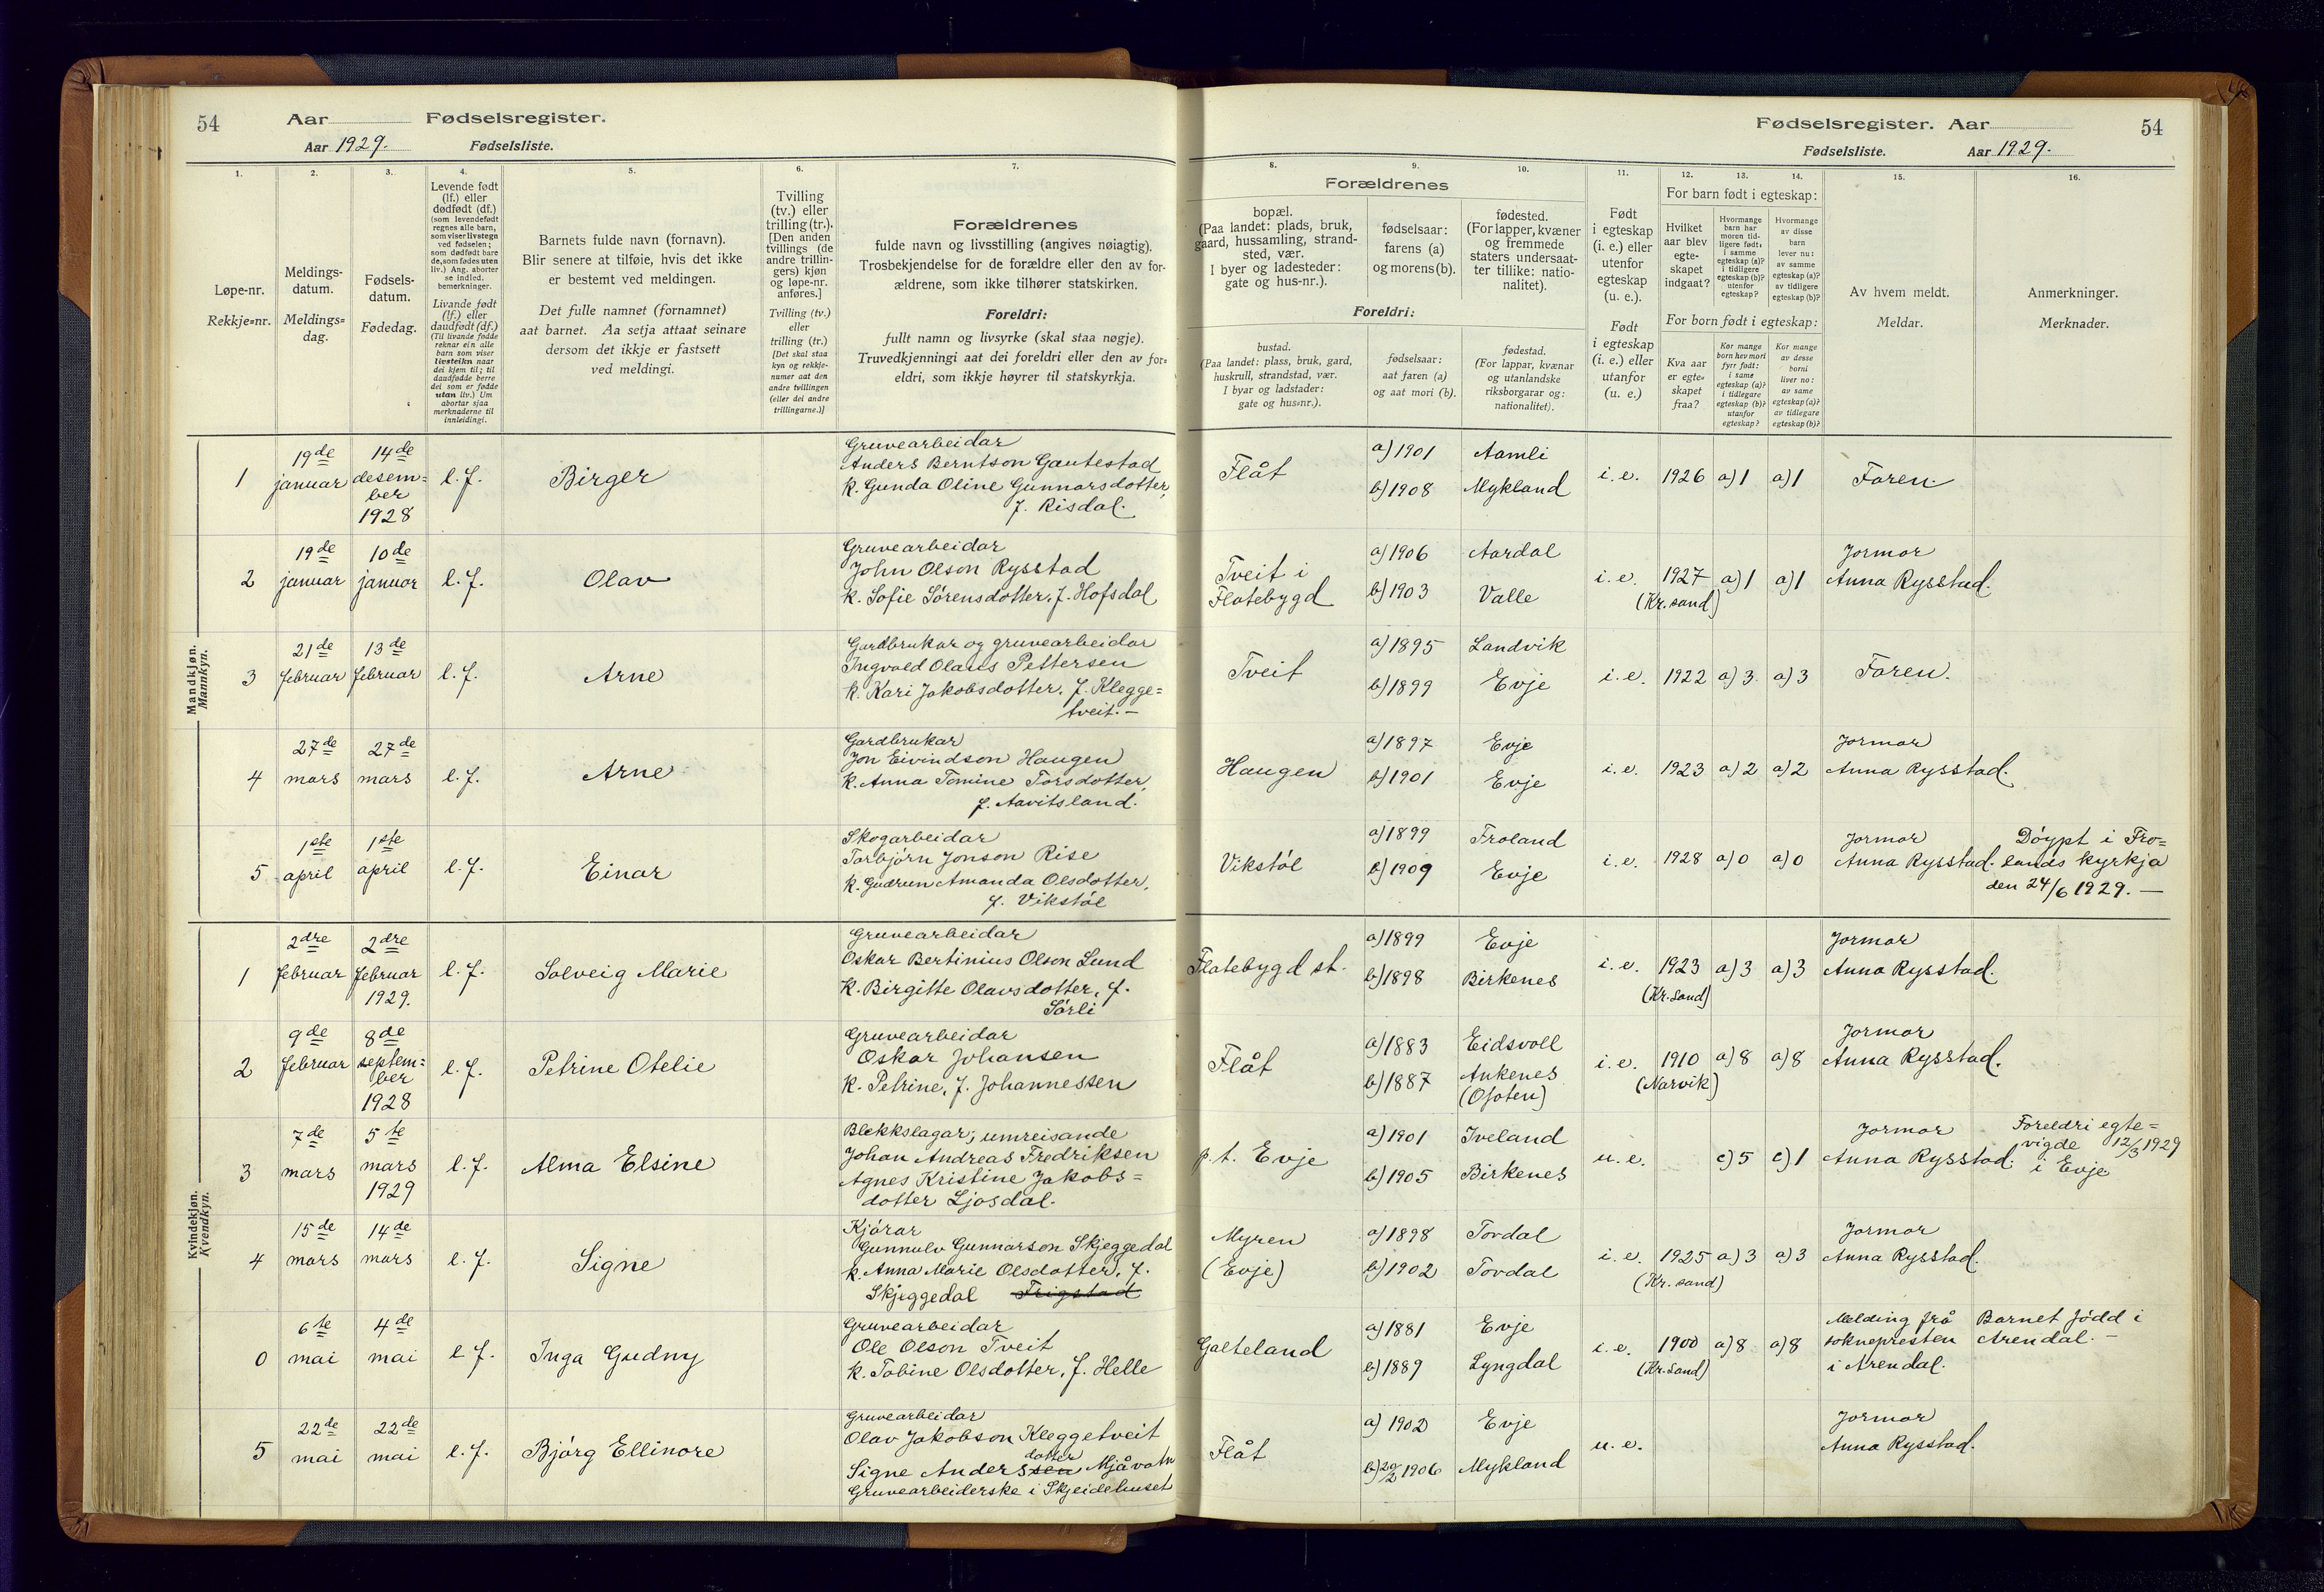 54 Aar Fødselsregister.
Aar 1929. Fødselsliste.
Fødselsregister. Aar 54
Fødselsliste. Aar 1929.
1.
Løpe-nr.
Rekkje=nr.
2.
Meldings-
datum.
Meldings=
dag.
3.
Fødsels-
datum.
Fødedag.
4.
Levende født
(lf.) eller
dødfødt (df.)
(som levendefødt
regnes alle barn,
som viser livstegn
ved fødselen;
som dødfødt bare
de, som fødes uten
liv.) Ang. aborter
se indled.
bemerkninger.
Livande født
(lf.) eller
daudfødt (df.)
(Til livande fødde
reknar ein alle
barn som viser
livsteikn naar
dei kjem til; til
daudfødde berre
dei som er fødde
utan liv.) Um
abortar sjaa
merknaderne til
innleidingi.
5.
Barnets fulde navn (fornavn).
Blir senere at tilføie, hvis det ikke
er bestemt ved meldingen.
Det fulle namnet (fornamnet)
aat barnet. Aa setja attaat seinare
dersom det ikkje er fastsett
ved meldingi.
6.
Tvilling
(tv.) eller
trilling (tr.).
[Den anden
tvillings (de
andre trillin-
gers) kjøn
og løpe-nr.
anføres.]
Tvilling (tv.)
eller
trilling (tr.)
[Det skal staa
kyn og rekkje-
numer aat den
andre tvillingen
(eller dei andre
trillingarne.)]
7.
Forældrenes
fulde navn og livsstilling (angives nøiagtig).
Trosbekjendelse for de forældre eller den av for-
ældrene, som ikke tilhører statskirken.
Foreldri:
fullt namn og livsyrke (skal staa nøgje).
Truvedkjenningi aat dei foreldri eller den av for=
eldri, som ikkje høyrer til statskyrkja.
8.
Forældrenes
bopæl.
(Paa landet: plads, bruk,
gaard, hussamling, strand-
sted, vær.
I byer og ladesteder:
gate og hus-nr.).
Foreldri:
bustad.
(Paa landet: plass, bruk, gard,
huskrull, strandstad, vær.
I byar og ladstader:
gate og hus=nr.).
9.
fødselsaar:
farens (a)
og morens (b).
fødselsaar:
aat faren (a)
og aat mori (b).
10.
fødested.
(For lapper, kvæner
og fremmede
staters undersaat-
ter tillike: natio-
nalitet).
fødestad.
(For lappar, kvænar
og utanlandske
riksborgarar og:
nationalitet).
11.
Født
i egteskap
(i. e.) eller
utenfor
egteskap
(u. e.).
Født
i egteskap
(i. e.) eller
utanfor
(u. e.)
12. 13. 14.
For barn født i egteskap:
Hvilket
aar blev
egte-
skapet
indgaat?
Hvormange
barn har
moren tid-
ligere født:
i samme
egteskap (a)?
i tidligere
egteskap (b)?
utenfor
egteskap?
Hvormange
av disse
barn
lever nu:
av samme
egteskap (a)?
av tidligere
egteskap (b)?
For born født i egteskap:
Kva aar
er egte=
skapet
fraa?
Kor mange
born hev mori
fyrr født:
i same
egteskap (a)?
i tidlegare
egteskap (b)?
utanfor
egteskap?
Kor mange
av desse
borni
liver no:
av same
egteskap (a)?
av tidlegare
egteskap (b)?
15.
Av hvem meldt.
Meldar.
16.
Anmerkninger.
Merknader.
Mandkjøn.
Mannkyn.
1
19de
januar
14de
desem=
ber
1928
l. f.
Birger
Gruvearbeidar
Anders Berntson Gautestad
k. Gunda Oline Gunnarsdotter,
f. Risdal.
Flåt
a) 1901
b) 1908
Aamli
Mykland
i. e.
1926
a) 1
a) 1
Faren.
2
19de
januar
10de
januar
l. f.
Olav
Gruvearbeidar
John Olson Rysstad
k. Sofie Sörensdotter, f. Hofsdal
Tveit i
Flatebygd
a) 1906
b) 1903
Aardal
Valle
i. e.
1927
(Kr.sand)
a) 1
a) 1
Jormor
Anna Rysstad.
3
21de
februar
13de
februar
l. f.
Arne
Gardbrukar og gruvearbeidar
Ingvald Olaus Pettersen
k. Kari Jakobsdotter, f. Klegge=
tveit. —
Tveit
a) 1895
b) 1899
Landvik
Evje
i. e.
1922
a) 3
a) 3
Faren.
4
27de
mars
27de
mars
l. f.
Arne
Gardbrukar
Jon Eivindson Haugen
k. Anna Tomine Torsdotter,
f. Aavitsland.
Haugen
a) 1897
b) 1901
Evje
Evje
i. e.
1923
a) 2
a) 2
Jormor
Anna Rysstad.
5
1ste
april
1ste
april
l. f.
Einar
Skogarbeidar
Torbjörn Jonson Rise
k. Gudrun Amanda Olsdotter,
f. Vikstöl
Vikstöl
a) 1899
b) 1909
Froland
Evje
i. e.
1928
a) 0
a) 0
Jormor
Anna Rysstad.
Döypt i Fro=
lands kyrkja
den 24/6 1929. —
Kvindekjøn.
Kvendkyn.
1
2dre
februar
2dre
februar
1929.
l. f.
Solveig Marie
Gruvearbeidar
Oskar Bertinius Olson Lund
k. Birgitte Olavsdotter, f.
Sörli
Flatebygd st.
a) 1899
b) 1898
Evje
Birkenes
i. e.
1923
(Kr.Sand)
a) 3
a) 3
Jormor
Anna Rysstad.
2
9de
februar
8de
septem=
ber
1928
l. f.
Petrine Otelie
Gruvearbeidar
Oskar Johansen
k. Petrine, f. Johannessen
Flåt
a) 1883
b) 1887
Eidsvoll
Ankenes
(Ofoten)
i. e.
1910
(Narvik)
a) 8
a) 8
Jormor
Anna Rysstad.
3
7de
mars
5te
mars
1929
l. f.
Alma Elsine
Blekkslagar; umreisande
Johan Andreas Fredriksen
Agnes Kristine Jakobs=
dotter Ljosdal.
p. t. Evje
a) 1901
b) 1905
Iveland
Birkenes
u. e.
c) 5
c) 1
Jormor
Anna Rysstad.
Foreldri egte=
vigde 12/3 1929
i Evje
4
15de
mars
14de
mars
l. f.
Signe
Kjörar
Gunnulv Gunnarson Skjeggedal
k. Anna Marie Olsdotter, f.
Skjeggedal Frigstad
Myren
(Evje)
a) 1898
b) 1902
Tovdal
Tovdal
i. e.
1925
(Kr. sand)
a) 3
a) 3
Jormor
Anna Rysstad.
0
6te
mai
4de
mai
l. f.
Inga Gudny
Gruvearbeidar
Ole Olson Tveit
k. Tobine Olsdotter, f. Helle
Galteland
a) 1881
b) 1889
Evje
Lyngdal
i. e.
1900
(Kr.Sand)
a) 8
a) 8
Melding frå
soknepresten
i Arendal.
Barnet född i
Arendal. —
5
22de
mai
22de
mai
l. f.
Björg Ellinore
Gruvearbeidar
Olav Jakobson Kleggetveit
dotter
Signe Anderssen Mjåvatn
Gruvearbeiderske i Skjeidehuset
Flåt
a) 1902
b) 20/2 1906
Evje
Mykland
u. e.
Jormor
Anna Rysstad.